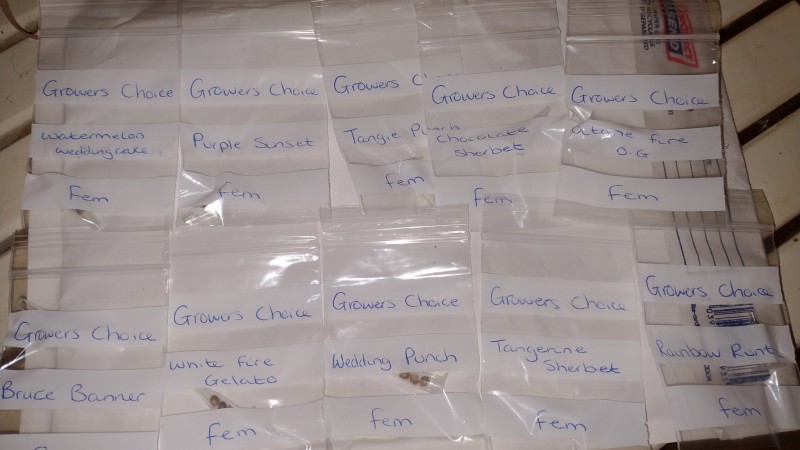 Growers Choice
Watermelon
wedding cake..
Fem
Growers Choice
Purple Sunset
fem
Growers C
Tangie Punch
fem
Growers Choice
Chocolate
Sherbet
fem
Growers Choice
fire
O.G
Fem
Growers Choice
Bruce Banner
Growers Choice
White fire
Gelato
fem
Growers Choice
Wedding Punch
fem
Growers Choice
Tangerine
Sherbet
fem
Growers Choice
Rainbow Runtz
fem